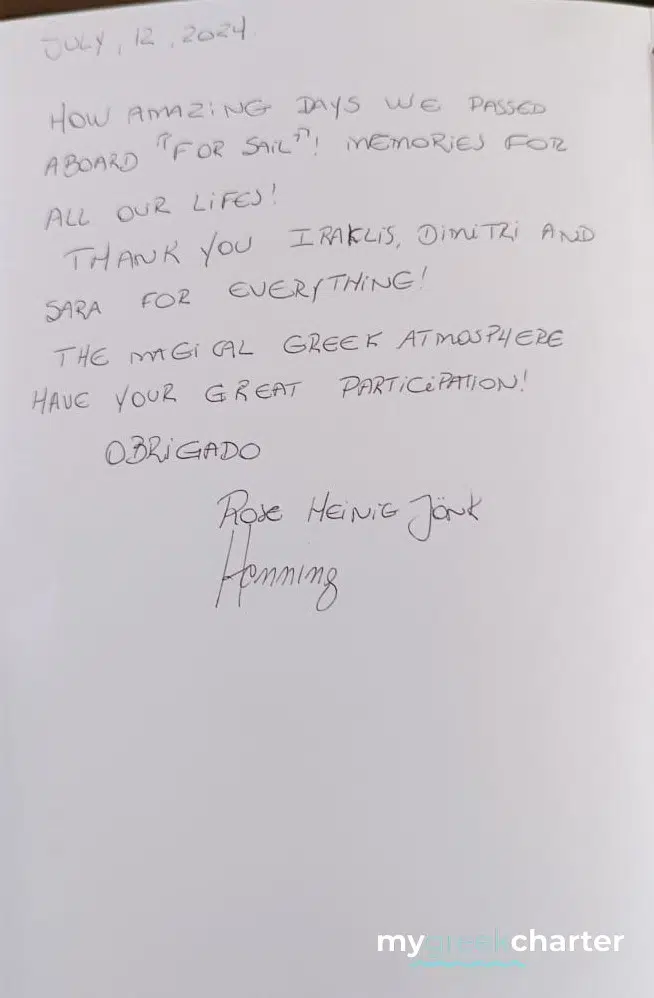 JULY, 12, 2024.
HOW AMAZING DAYS WE PASSED
ABOARD "FOR SAIL"! MEMORIES FOR
ALL OUR LIFES!
THANK YOU IRAKLIS, DIMITRI AND
SARA FOR EVERYTHING!
THE MAGICAL GREEK ATMOSPHERE
HAVE YOUR GREAT PARTICIPATION!
OBRIGADO
Rose HEINIG JÖNK
Henning
mygreekcharter